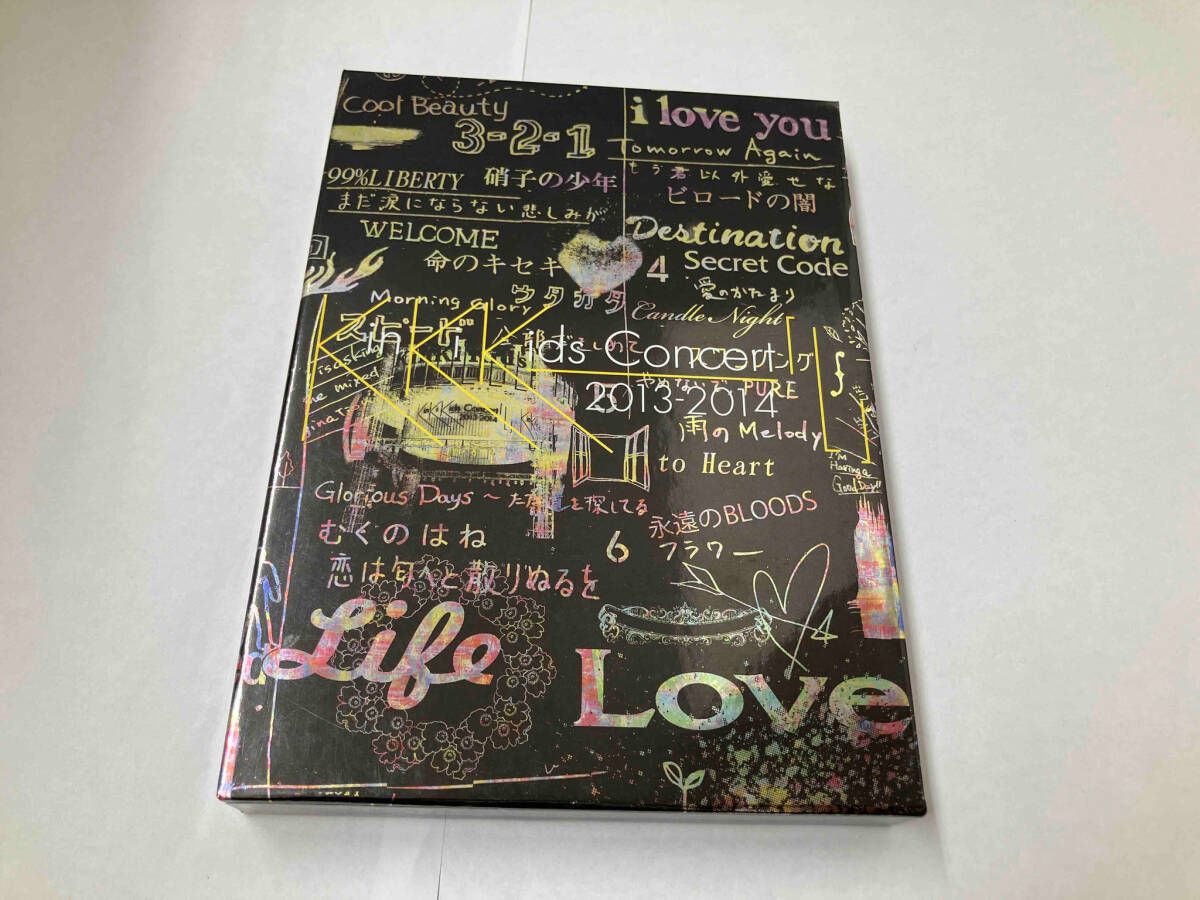 Cool Beauty
i love you
3-2-1
Tomorrow Again
99%LIBERTY
硝子の少年
もう君以外愛せな
ビロードの闇
まだ涙にならない悲しみが
WELCOME
Destination
命のキセキ
4
Secret Code
愛のかたまり
Morning Glory
ウタカタ
Candle Night
KinKi Kids Concert
2013-2014
「L」
PURE
雨のMelody
to Heart
I'm
Having a
Good Day!!
Glorious Days ~
を探してる
永遠のBLOODS
むくのはね
6
フラワー
恋は匂へと散りぬるを
Life
Love